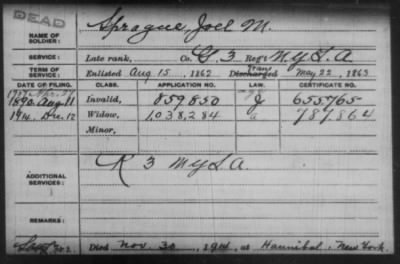 DEAD
NAME OF SOLDIER: Sprague, Joel M.
SERVICE: Late rank, Co. G. 3 Reg't N.Y.L.A
TERM OF SERVICE: Enlisted Aug 15, 1862 Trans Discharged May 22, 1863
DATE OF FILING. CLASS. APPLICATION NO. LAW. CERTIFICATE NO.
1890. Aug 11 Invalid, 859850 J 655765
1914. Dec. 12 Widow, 1,038,284 a 787864
Minor,
ADDITIONAL SERVICES: K 3 N.Y.L.A.
REMARKS:
Died Nov. 30, 1914, at Hannibal, New York.